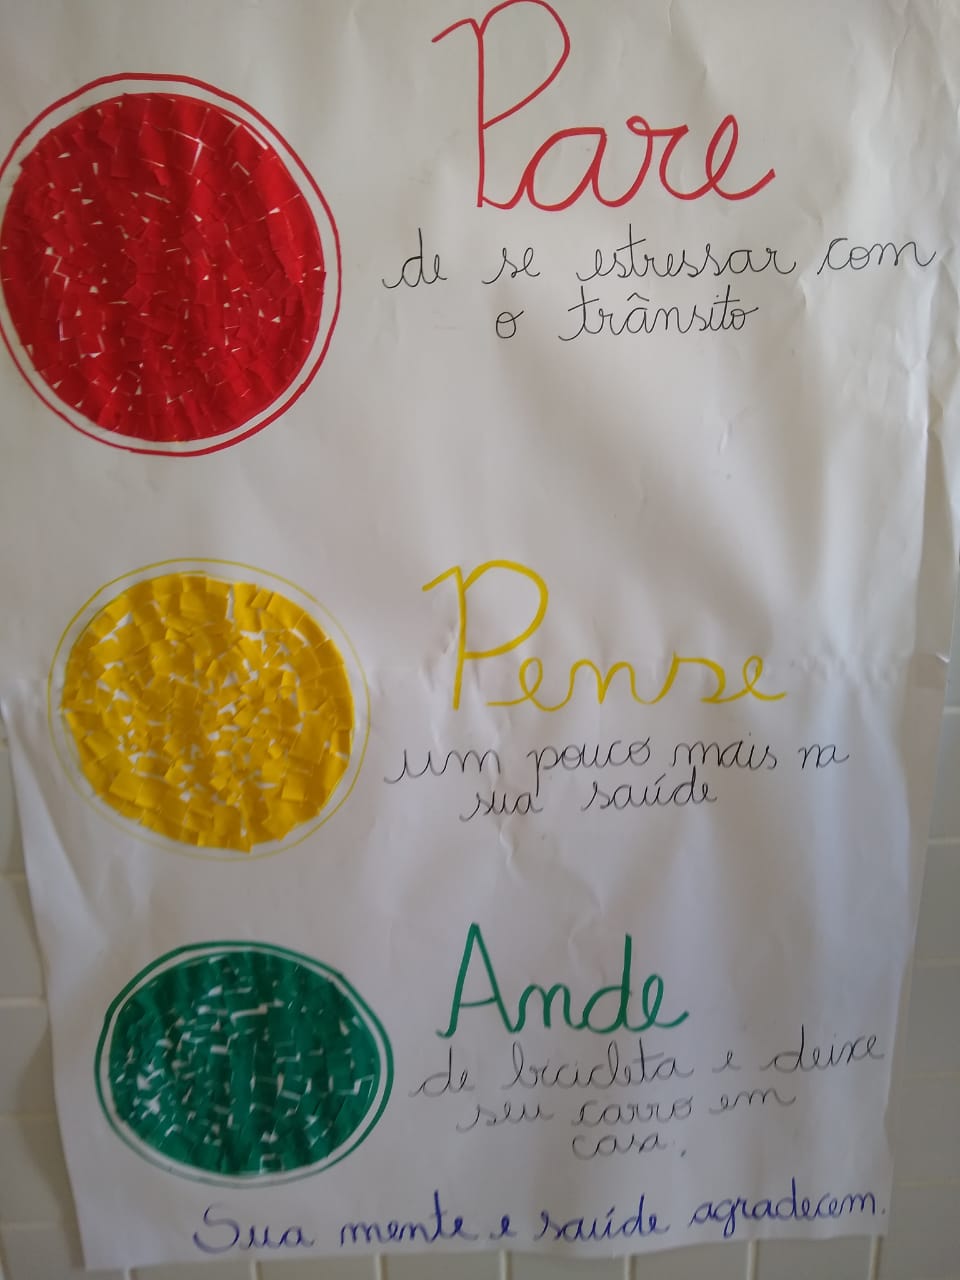 Pare
de se estressar com
o trânsito
Pense
um pouco mais na
sua saúde
Ande
de bicicleta e deixe
seu carro em
casa.
Sua mente e saúde agradecem.